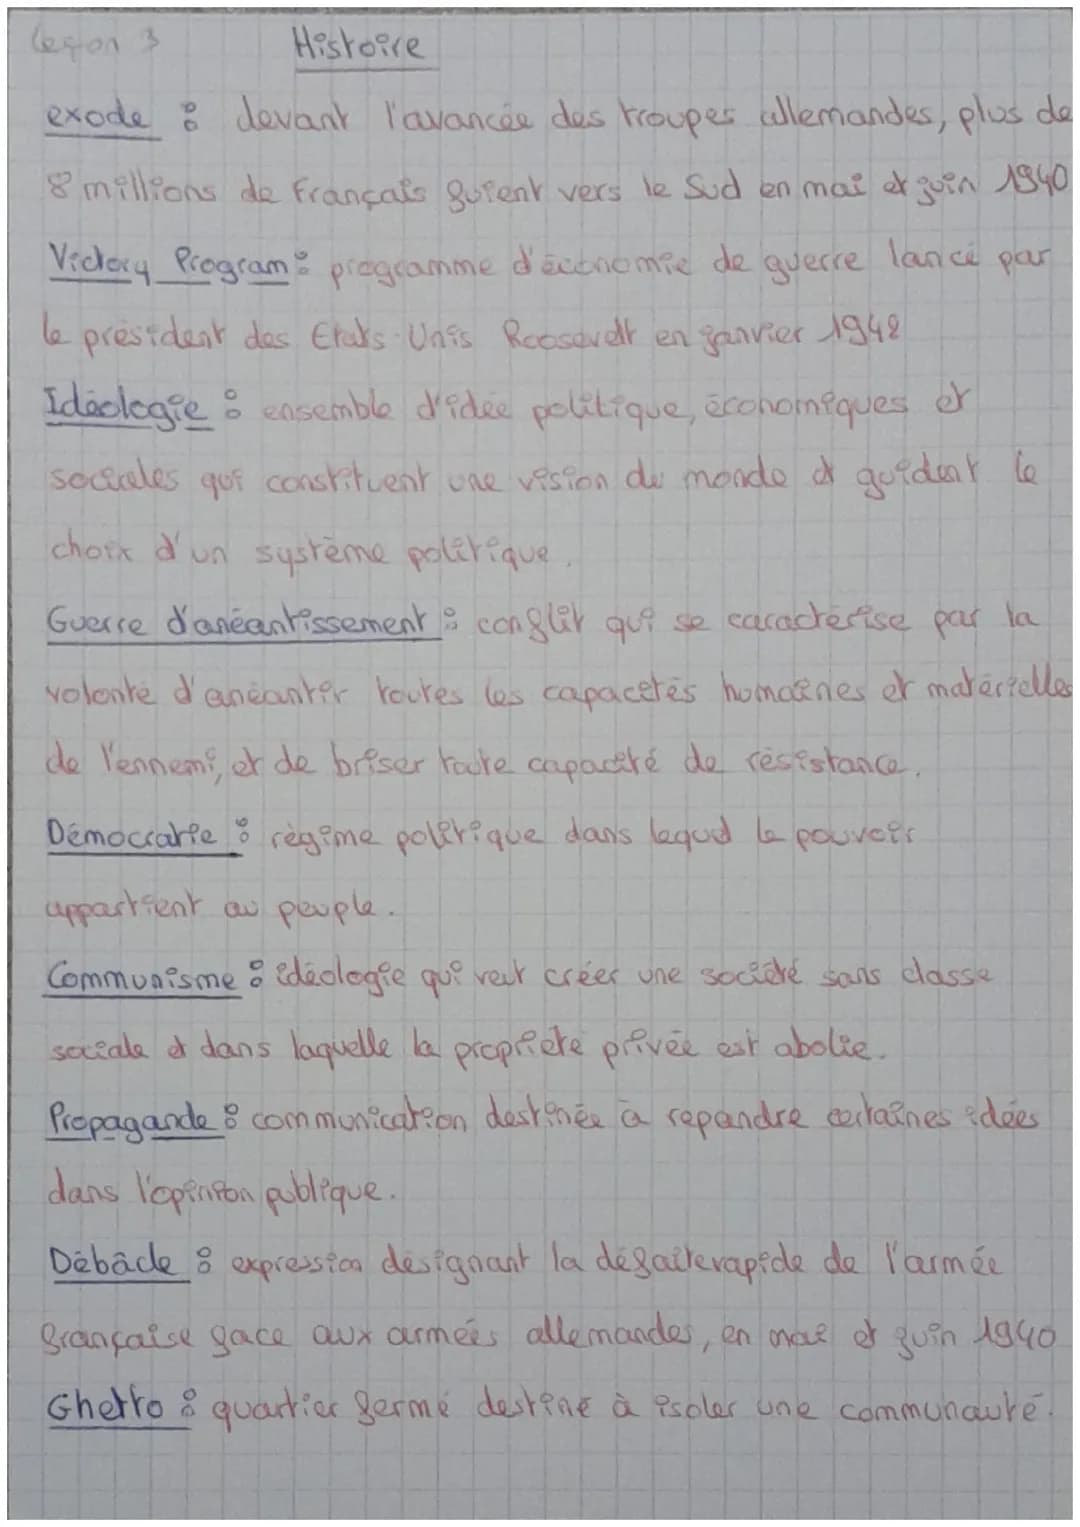 leçon 3
Histoire
exode : devant l'avancée des troupes allemandes, plus de
8 millions de Français fuient vers le Sud en mai et juin 1940
Victory Program : programme d'économie de guerre lancé par
le président des Etats-Unis Roosevelt en janvier 1942
Idéologie : ensemble d'idée politique, économiques et
sociales qui constituent une vision du monde et guident le
choix d'un système politique.
Guerre d'anéantissement : conflit qui se caractérise par la
volonté d'anéantir toutes les capacités humaines et matérielles
de l'ennemi, et de briser toute capacité de résistance.
Démocratie : régime politique dans lequel le pouvoir
appartient au peuple.
Communisme : idéologie qui veut créer une société sans classe
sociale et dans laquelle la propriété privée est abolie.
Propagande : communication destinée à répandre certaines idées
dans l'opinion publique.
Débâcle : expression désignant la défaite rapide de l'armée
française face aux armées allemandes, en mai et juin 1940
Ghetto : quartier fermé destiné à isoler une communauté.